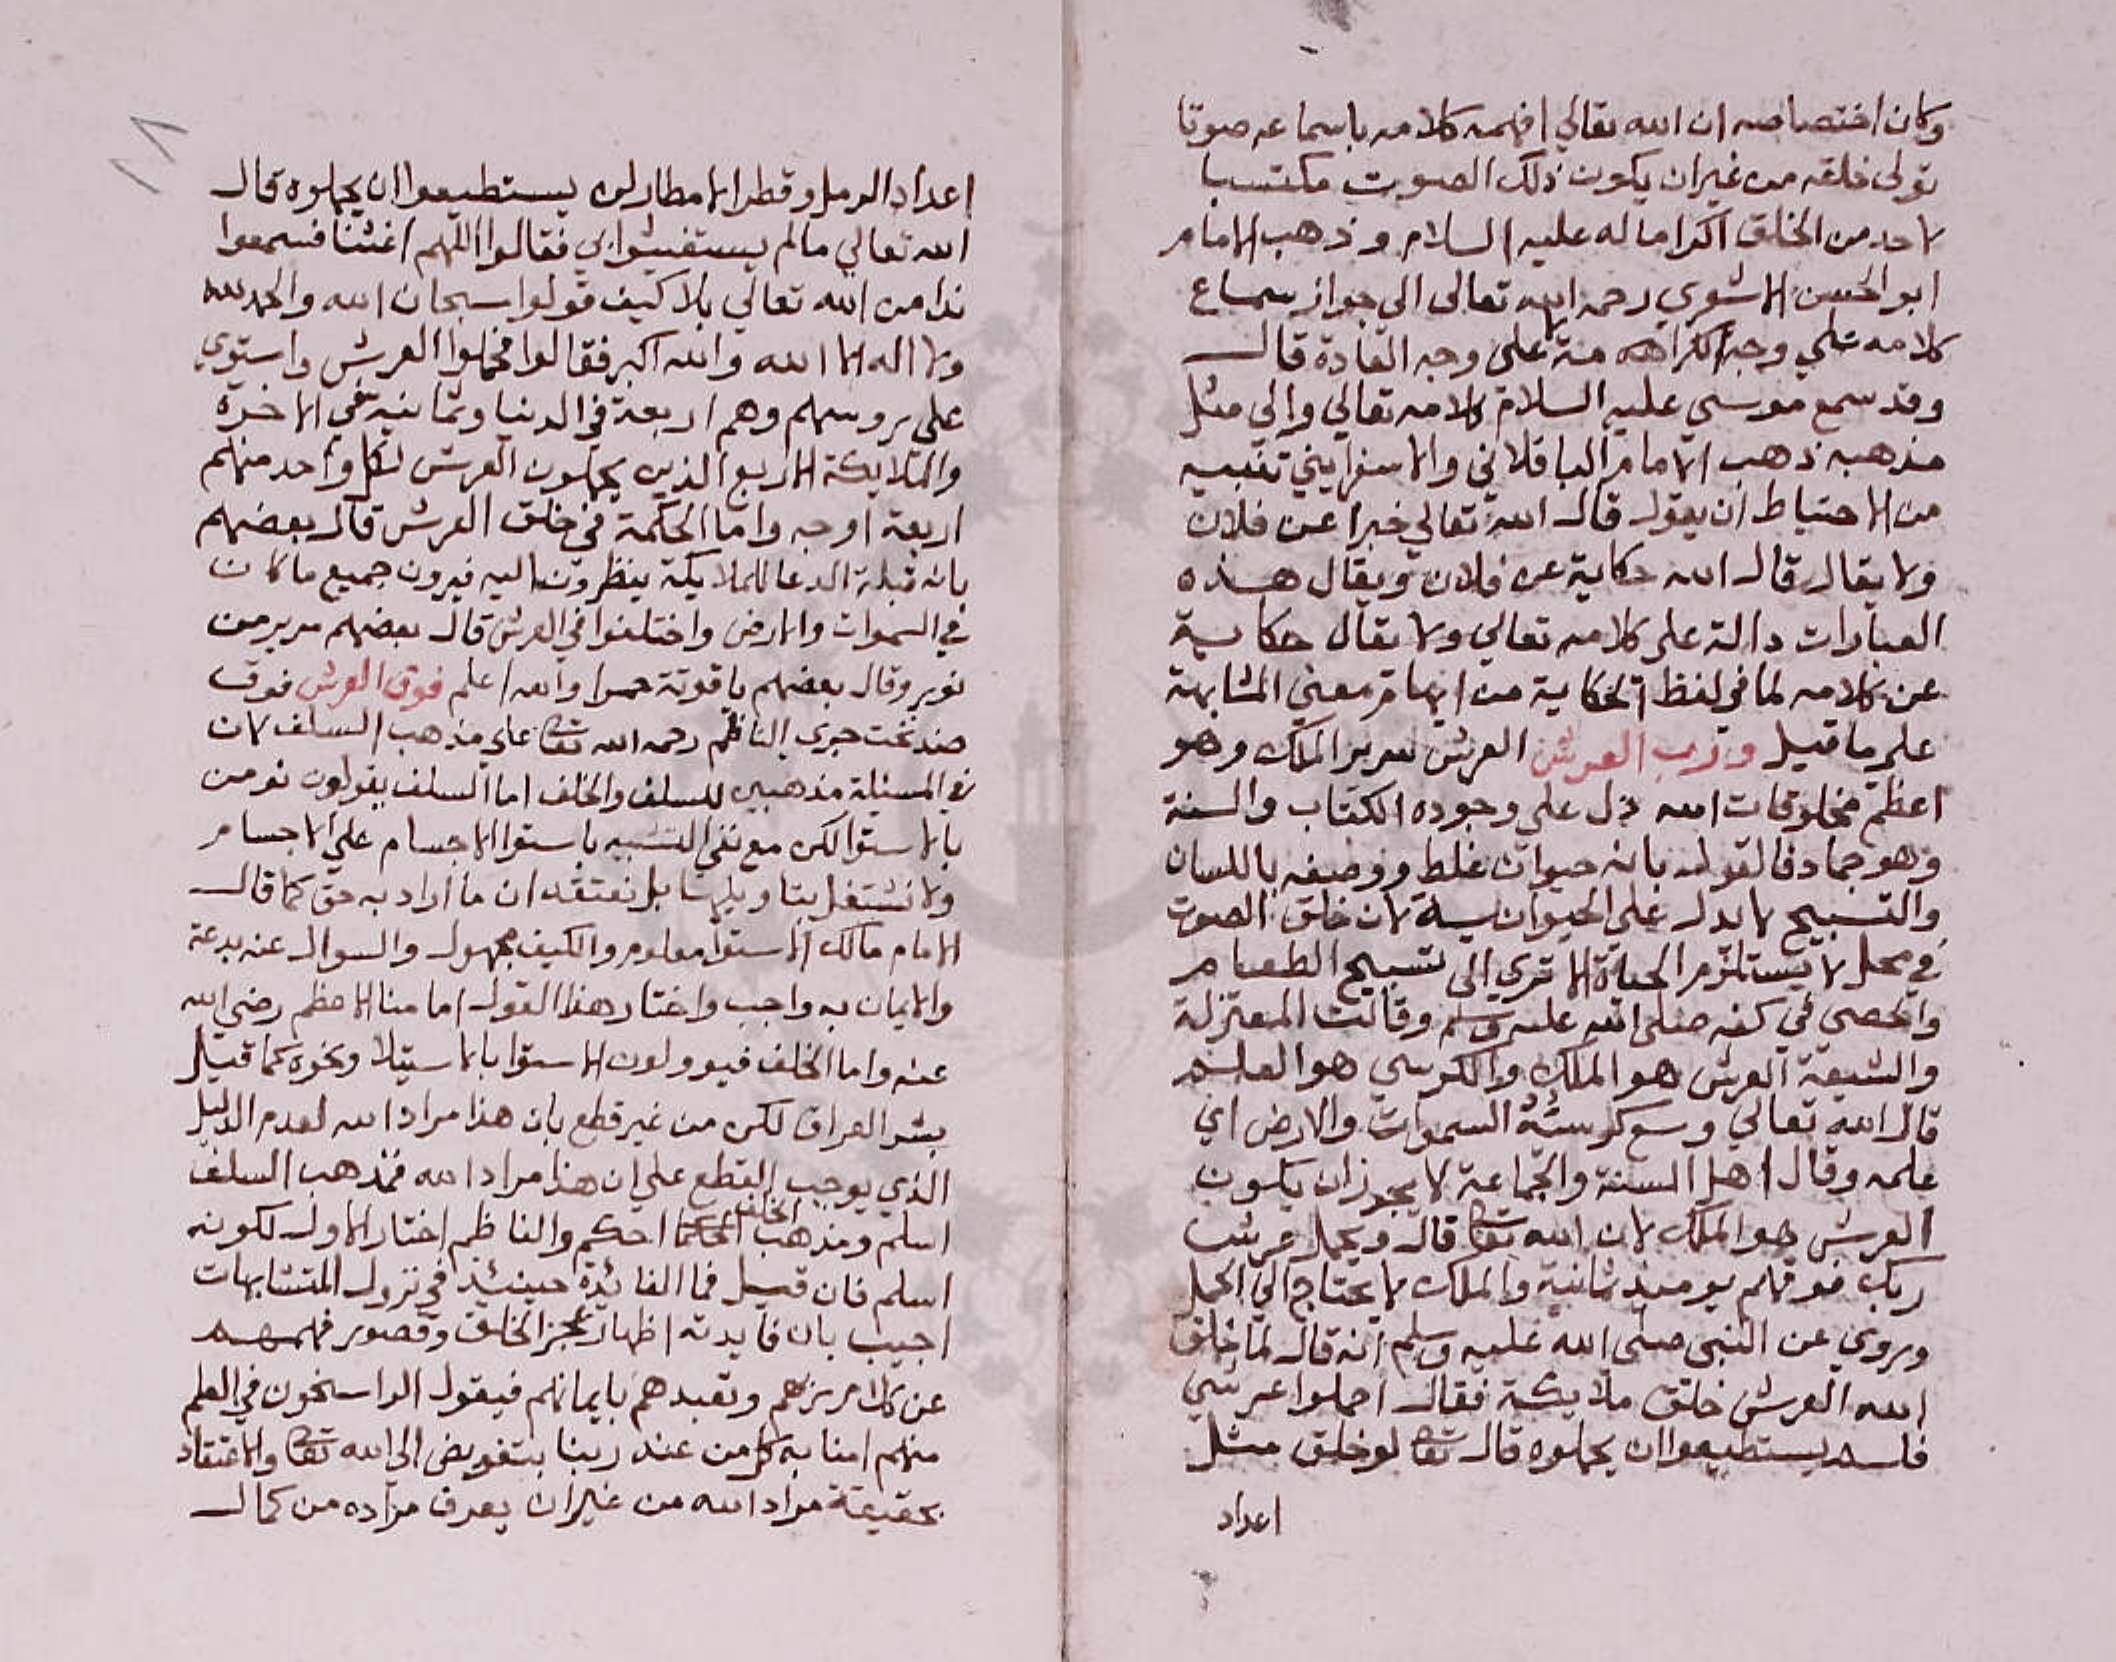 وكان اختصاصه ان الله تعالي افهمه كلامه باسماعه صوتا
تولى خلقه من غير ان يكون ذلك الصوت مكتسبا
لاحد من الخلق اكراما له عليه السلام وذهب الامام
ابو الحسن الاشعري رحمه الله تعالى الى جواز سماع
كلامه علي وجه الكراهه منه لا على وجه العادة قال
وقد سمع موسي عليه السلام كلامه تعالي والي مثل
مذهبه ذهب الامام الباقلاني والاسفرايني تنبيه
من الاحتياط ان يقول قال الله تعالي خبرا عن فلان
ولا يقال قال الله حكاية عن فلان ويقال هذه
العبارات دالة على كلامه تعالي ولا يقال حكاية
عن كلامه لما في لفظ الحكاية من ايهام معني المشابهة
علي ما قيل ورب العرش العرش سرير الملك وهو
اعظم مخلوقات الله دل علي وجوده الكتاب والسنة
وهو جماد فالقول بانه حيوان غلط ووصفه باللسان
والتسبيح لا يدل علي الحيوانية لان خلق الصوت
في محل لا يستلزم الحياة الا تري الى تسبيح الطعام
والحصي في كفه صلى الله عليه وسلم وقالت المعتزلة
والشيعة العرش هو الملك والكرسي هو العلم
قال الله تعالي وسع كرسيه السموات والارض اي
علمه وقال اهل السنة والجماعة لا يجوز ان يكون
العرش هو الملك لان الله تعالى قال ويحمل عرش
ربك فوقهم يوميذ ثمانية والملك لا يحتاج الي الحمل
وروي عن النبي صلى الله عليه وسلم انه قال لما خلق
الله العرش خلق ملايكة فقال احملوا عرشي
فلم يستطيعوا ان يحملوه قال تعالى لو خلق مثل
اعداد
١٨
اعداد الرمل وقطر الامطار لن يستطيعوا ان يحملوه قال
الله تعالي مالم يستغيثوا بي فقالوا اللهم اغثنا فسمعوا
ندا من الله تعالي بلا كيف قولوا سبحان الله والحمد لله
ولا اله الا الله والله اكبر فقالوا فحملوا العرش واستوي
على روسهم وهم اربعة في الدنيا وثمانية في الاخرة
والملايكة الاربع الذين يحملون العرش لكل واحد منهم
اربعة اوجه واما الحكمة في خلق العرش قال بعضهم
بانه قبلة الدعا للملايكة ينظرون اليه فيرون جميع ما كان
في السموات والارض واختلفوا في العرش قال بعضهم سرير من
نور وقال بعضهم ياقوتة حمرا والله اعلم فوق العرش فوق
ضد تحت جري الناظم رحمه الله تعالى علي مذهب السلف لان
في المسئلة مذهبين للسلف والخلف اما السلف يقولون نومن
بالاستوا لكن مع نفي التشبيه باستوا الاجسام علي الاجسام
ولا نشتغل بتاويلها بل نعتقد ان ما اراد به حق كما قال
الامام مالك الاستوا معلوم والكيف مجهول والسوال عنه بدعة
والايمان به واجب واختار هذا القول امامنا الاعظم رضي الله
عنه واما الخلف فيوولون الاستوا بالاستيلا ونحوه كما قيل
بشر العراق لكن من غير قطع بان هذا مراد الله لعدم الدليل
الذي يوجب القطع علي ان هذا مراد الله فمذهب السلف
اسلم ومذهب الخلف احكم والناظم اختار الاول لكونه
اسلم فان قيل فما الفائدة حينئذ في نزول المتشابهات
اجيب بان فايدته اظهار عجز الخلق وقصور فهمهم
عن كلام ربهم وتعبدهم بايمانهم فيقول الراسخون في العلم
منهم امنا به كل من عند ربنا بتفويض الى الله تعالى والاعتقاد
بحقيقة مراد الله من غير ان يعرف مراده من كمال